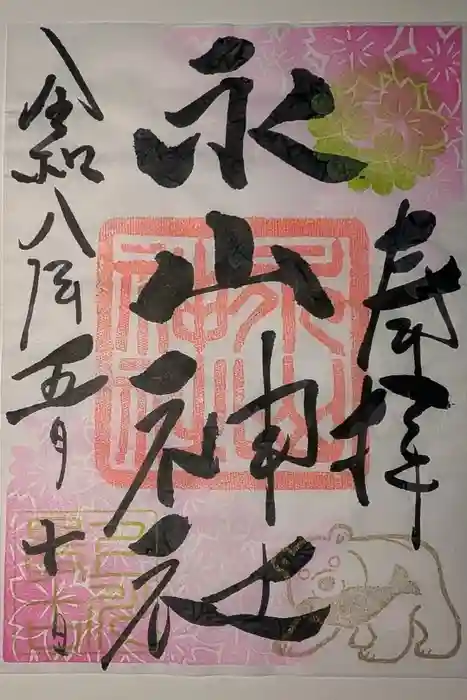 奉拝
永山神社
令和八年五月十日